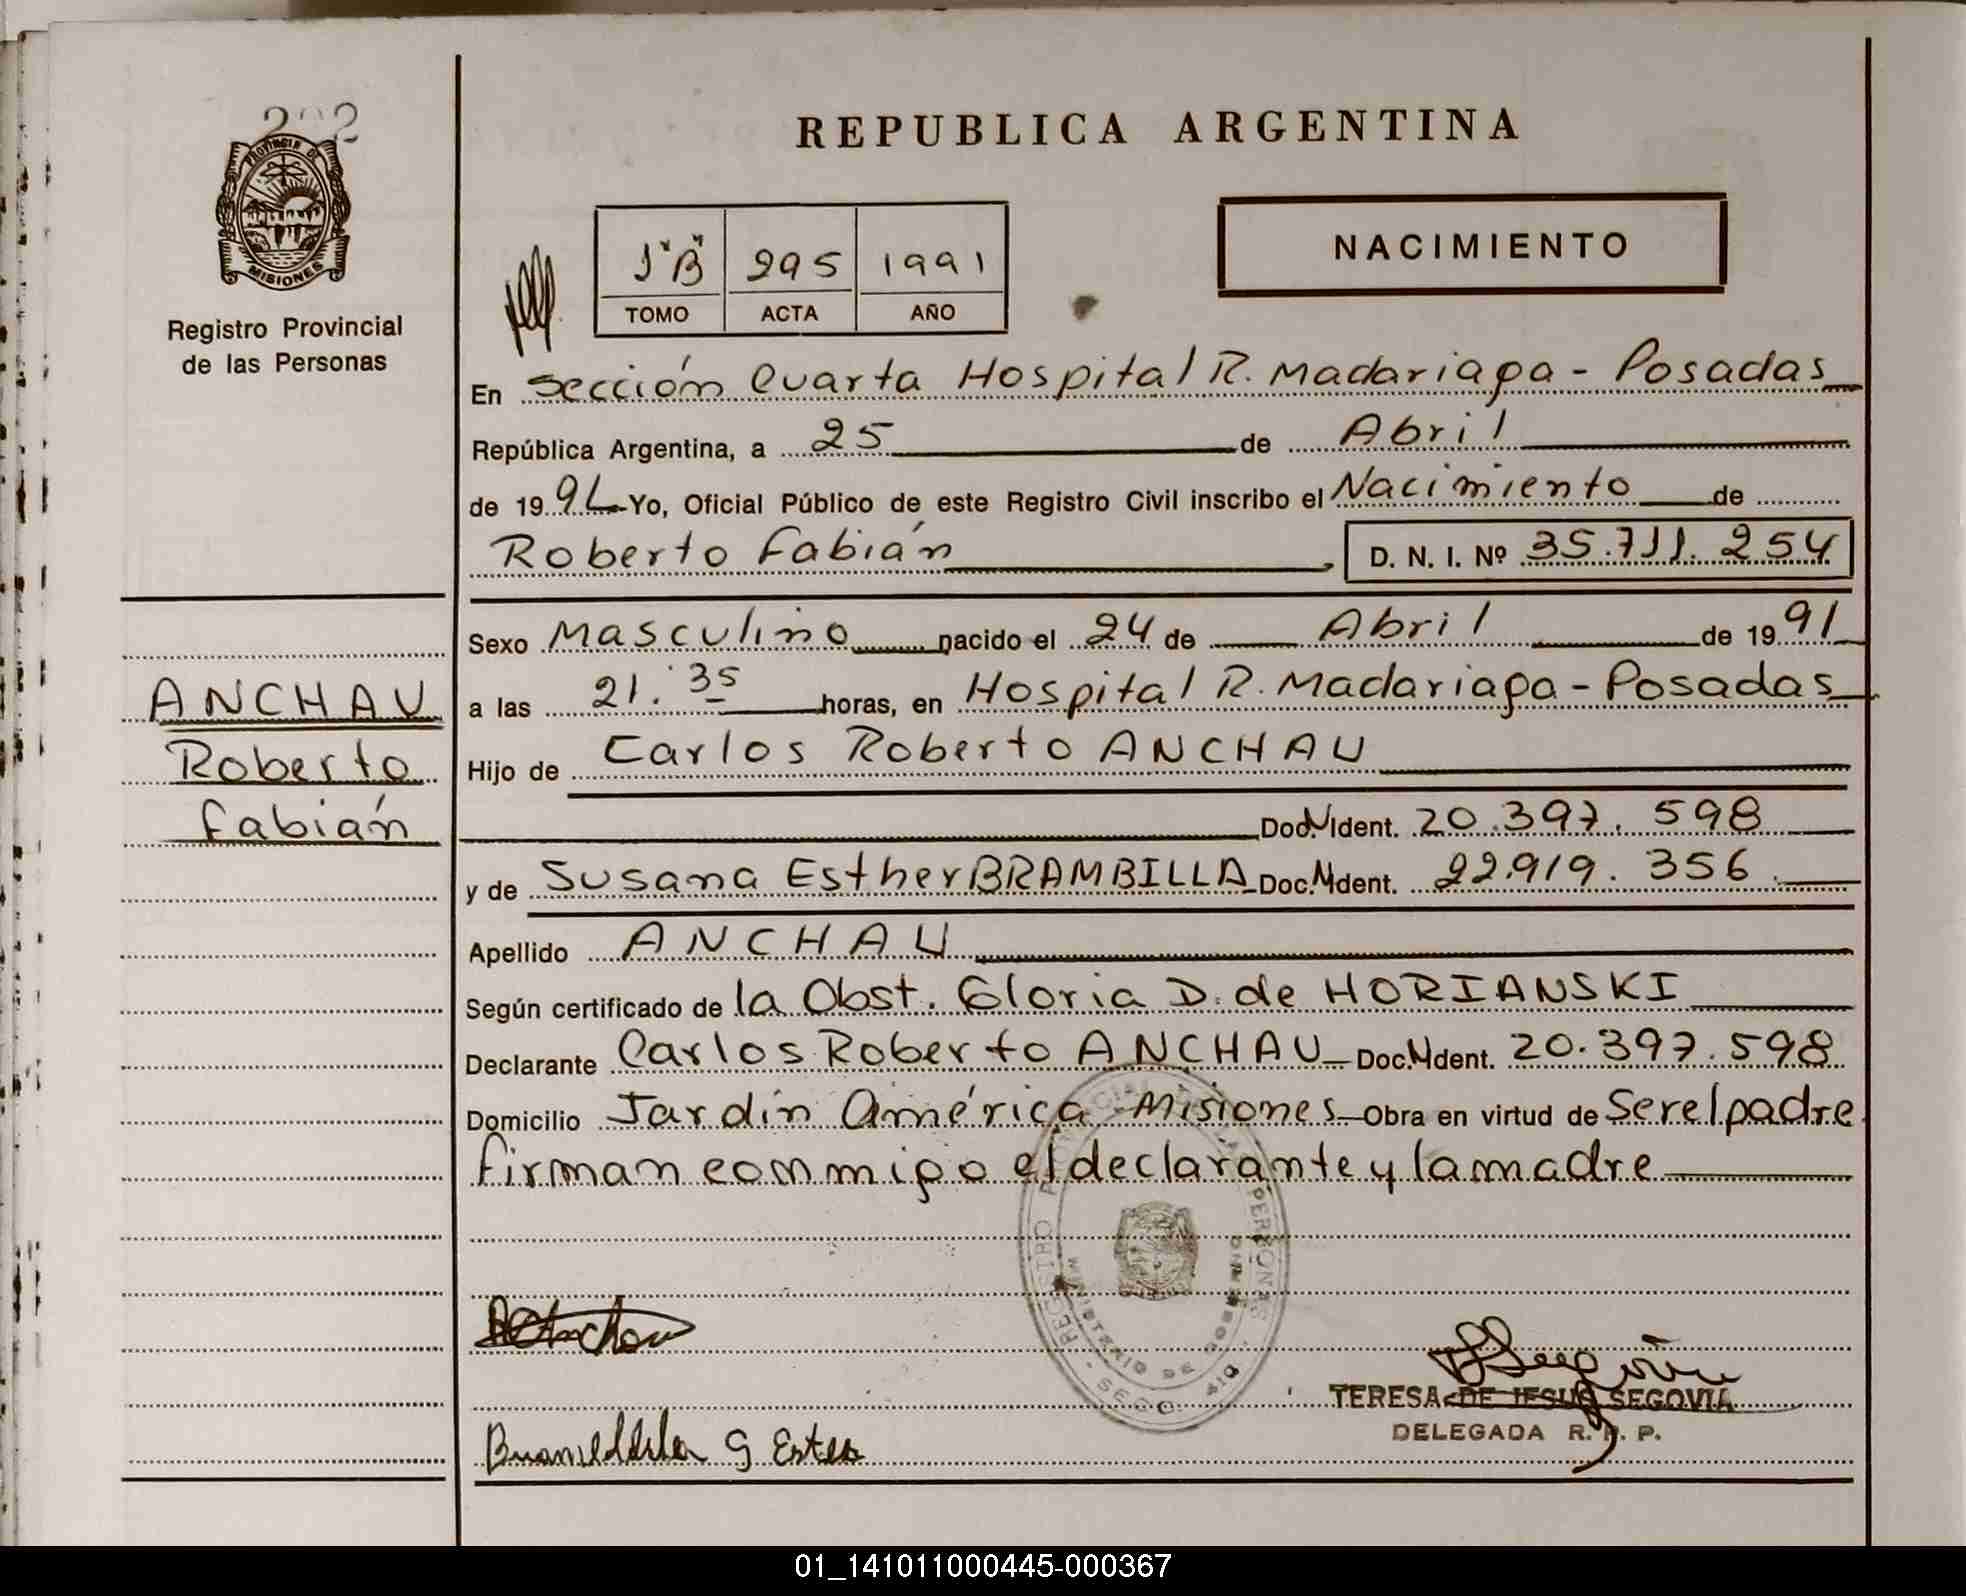 PROVINCIA DE
MISIONES
Registro Provincial
de las Personas
ANCHAU
Roberto
Fabián
REPUBLICA ARGENTINA
1º"B" 295 1991
TOMO ACTA AÑO
NACIMIENTO
En Sección Cuarta Hospital R. Madariaga - Posadas
República Argentina, a 25 de Abril
de 1991 Yo, Oficial Público de este Registro Civil inscribo el Nacimiento de
Roberto Fabián D. N. I. Nº 35.711.254
Sexo Masculino nacido el 24 de Abril de 1991
a las 21.35 horas, en Hospital R. Madariaga - Posadas
Hijo de Carlos Roberto ANCHAU
Doc. N Ident. 20.397.598
y de Susana Esther BRAMBILLA Doc. N Ident. 22.919.356
Apellido ANCHAU
Según certificado de la Obst. Gloria D. de HORIANSKI
Declarante Carlos Roberto ANCHAU Doc. N Ident. 20.397.598
Domicilio Jardín América - Misiones Obra en virtud de Ser el padre
firman conmigo el declarante y la madre
TERESA DE JESUS SEGOVIA
DELEGADA R. P. P.
01_141011000445-000367